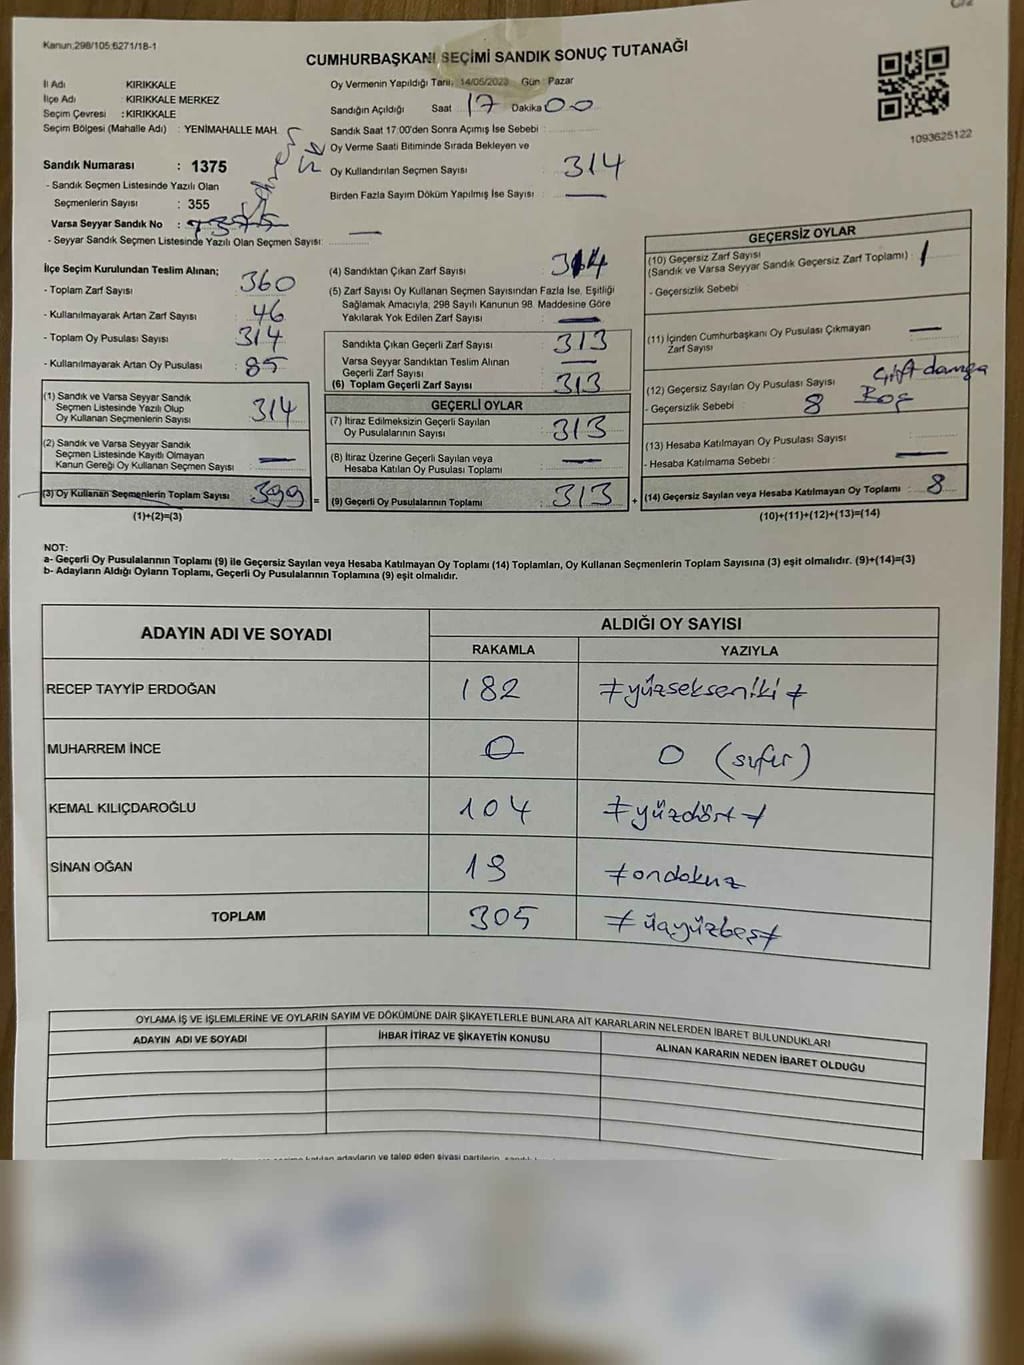 C/2
Kanun:298/105;6271/18-1
CUMHURBAŞKANI SEÇİMİ SANDIK SONUÇ TUTANAĞI
İl Adı KIRIKKALE
İlçe Adı : KIRIKKALE MERKEZ
Seçim Çevresi : KIRIKKALE
Seçim Bölgesi (Mahalle Adı) : YENİMAHALLE MAH.
Sandık Numarası : 1375
- Sandık Seçmen Listesinde Yazılı Olan
Seçmenlerin Sayısı : 355
Varsa Seyyar Sandık No :
- Seyyar Sandık Seçmen Listesinde Yazılı Olan Seçmen Sayısı: —
Oy Vermenin Yapıldığı Tarih: 14/05/2023 Gün : Pazar
Sandığın Açıldığı Saat 17 Dakika 00
Sandık Saat 17:00'den Sonra Açımış İse Sebebi :
Oy Verme Saati Bitiminde Sırada Bekleyen ve
Oy Kullandırılan Seçmen Sayısı : 314
Birden Fazla Sayım Döküm Yapılmış İse Sayısı : —
1093625122
İlçe Seçim Kurulundan Teslim Alınan;
- Toplam Zarf Sayısı : 360
- Kullanılmayarak Artan Zarf Sayısı : 46
- Toplam Oy Pusulası Sayısı : 314
- Kullanılmayarak Artan Oy Pusulası : 85
(1) Sandık ve Varsa Seyyar Sandık
Seçmen Listesinde Yazılı Olup
Oy Kullanan Seçmenlerin Sayısı : 314
(2) Sandık ve Varsa Seyyar Sandık
Seçmen Listesinde Kayıtlı Olmayan
Kanun Gereği Oy Kullanan Seçmen Sayısı : —
(3) Oy Kullanan Seçmenlerin Toplam Sayısı : 399 =
(1)+(2)=(3)
(4) Sandıktan Çıkan Zarf Sayısı : 314
(5) Zarf Sayısı Oy Kullanan Seçmen Sayısından Fazla İse, Eşitliği
Sağlamak Amacıyla, 298 Sayılı Kanunun 98. Maddesine Göre
Yakılarak Yok Edilen Zarf Sayısı : —
Sandıkta Çıkan Geçerli Zarf Sayısı : 313
Varsa Seyyar Sandıktan Teslim Alınan
Geçerli Zarf Sayısı : —
(6) Toplam Geçerli Zarf Sayısı : 313
GEÇERLİ OYLAR
(7) İtiraz Edilmeksizin Geçerli Sayılan
Oy Pusulalarının Sayısı : 313
(8) İtiraz Üzerine Geçerli Sayılan veya
Hesaba Katılan Oy Pusulası Toplamı : —
(9) Geçerli Oy Pusulalarının Toplamı : 313 +
GEÇERSİZ OYLAR
(10) Geçersiz Zarf Sayısı
(Sandık ve Varsa Seyyar Sandık Geçersiz Zarf Toplamı) : 1
- Geçersizlik Sebebi :
(11) İçinden Cumhurbaşkanı Oy Pusulası Çıkmayan
Zarf Sayısı : —
(12) Geçersiz Sayılan Oy Pusulası Sayısı : 8
- Geçersizlik Sebebi : Çift damga
Boş
(13) Hesaba Katılmayan Oy Pusulası Sayısı :
- Hesaba Katılmama Sebebi : —
(14) Geçersiz Sayılan veya Hesaba Katılmayan Oy Toplamı : 8
(10)+(11)+(12)+(13)=(14)
NOT:
a- Geçerli Oy Pusulalarının Toplamı (9) ile Geçersiz Sayılan veya Hesaba Katılmayan Oy Toplamı (14) Toplamları, Oy Kullanan Seçmenlerin Toplam Sayısına (3) eşit olmalıdır. (9)+(14)=(3)
b- Adayların Aldığı Oyların Toplamı, Geçerli Oy Pusulalarının Toplamına (9) eşit olmalıdır.
ADAYIN ADI VE SOYADI ALDIĞI OY SAYISI
RAKAMLA YAZIYLA
RECEP TAYYİP ERDOĞAN 182 #yüzsekseniki#
MUHARREM İNCE 0 0 (sıfır)
KEMAL KILIÇDAROĞLU 104 #yüzdört#
SİNAN OĞAN 19 #ondokuz
TOPLAM 305 #üçyüzbeş#
OYLAMA İŞ VE İŞLEMLERİNE VE OYLARIN SAYIM VE DÖKÜMÜNE DAİR ŞİKAYETLERLE BUNLARA AİT KARARLARIN NELERDEN İBARET BULUNDUKLARI
ADAYIN ADI VE SOYADI İHBAR İTİRAZ VE ŞİKAYETİN KONUSU ALINAN KARARIN NEDEN İBARET OLDUĞU
katılan adayların ve talep eden siyasi partilerin